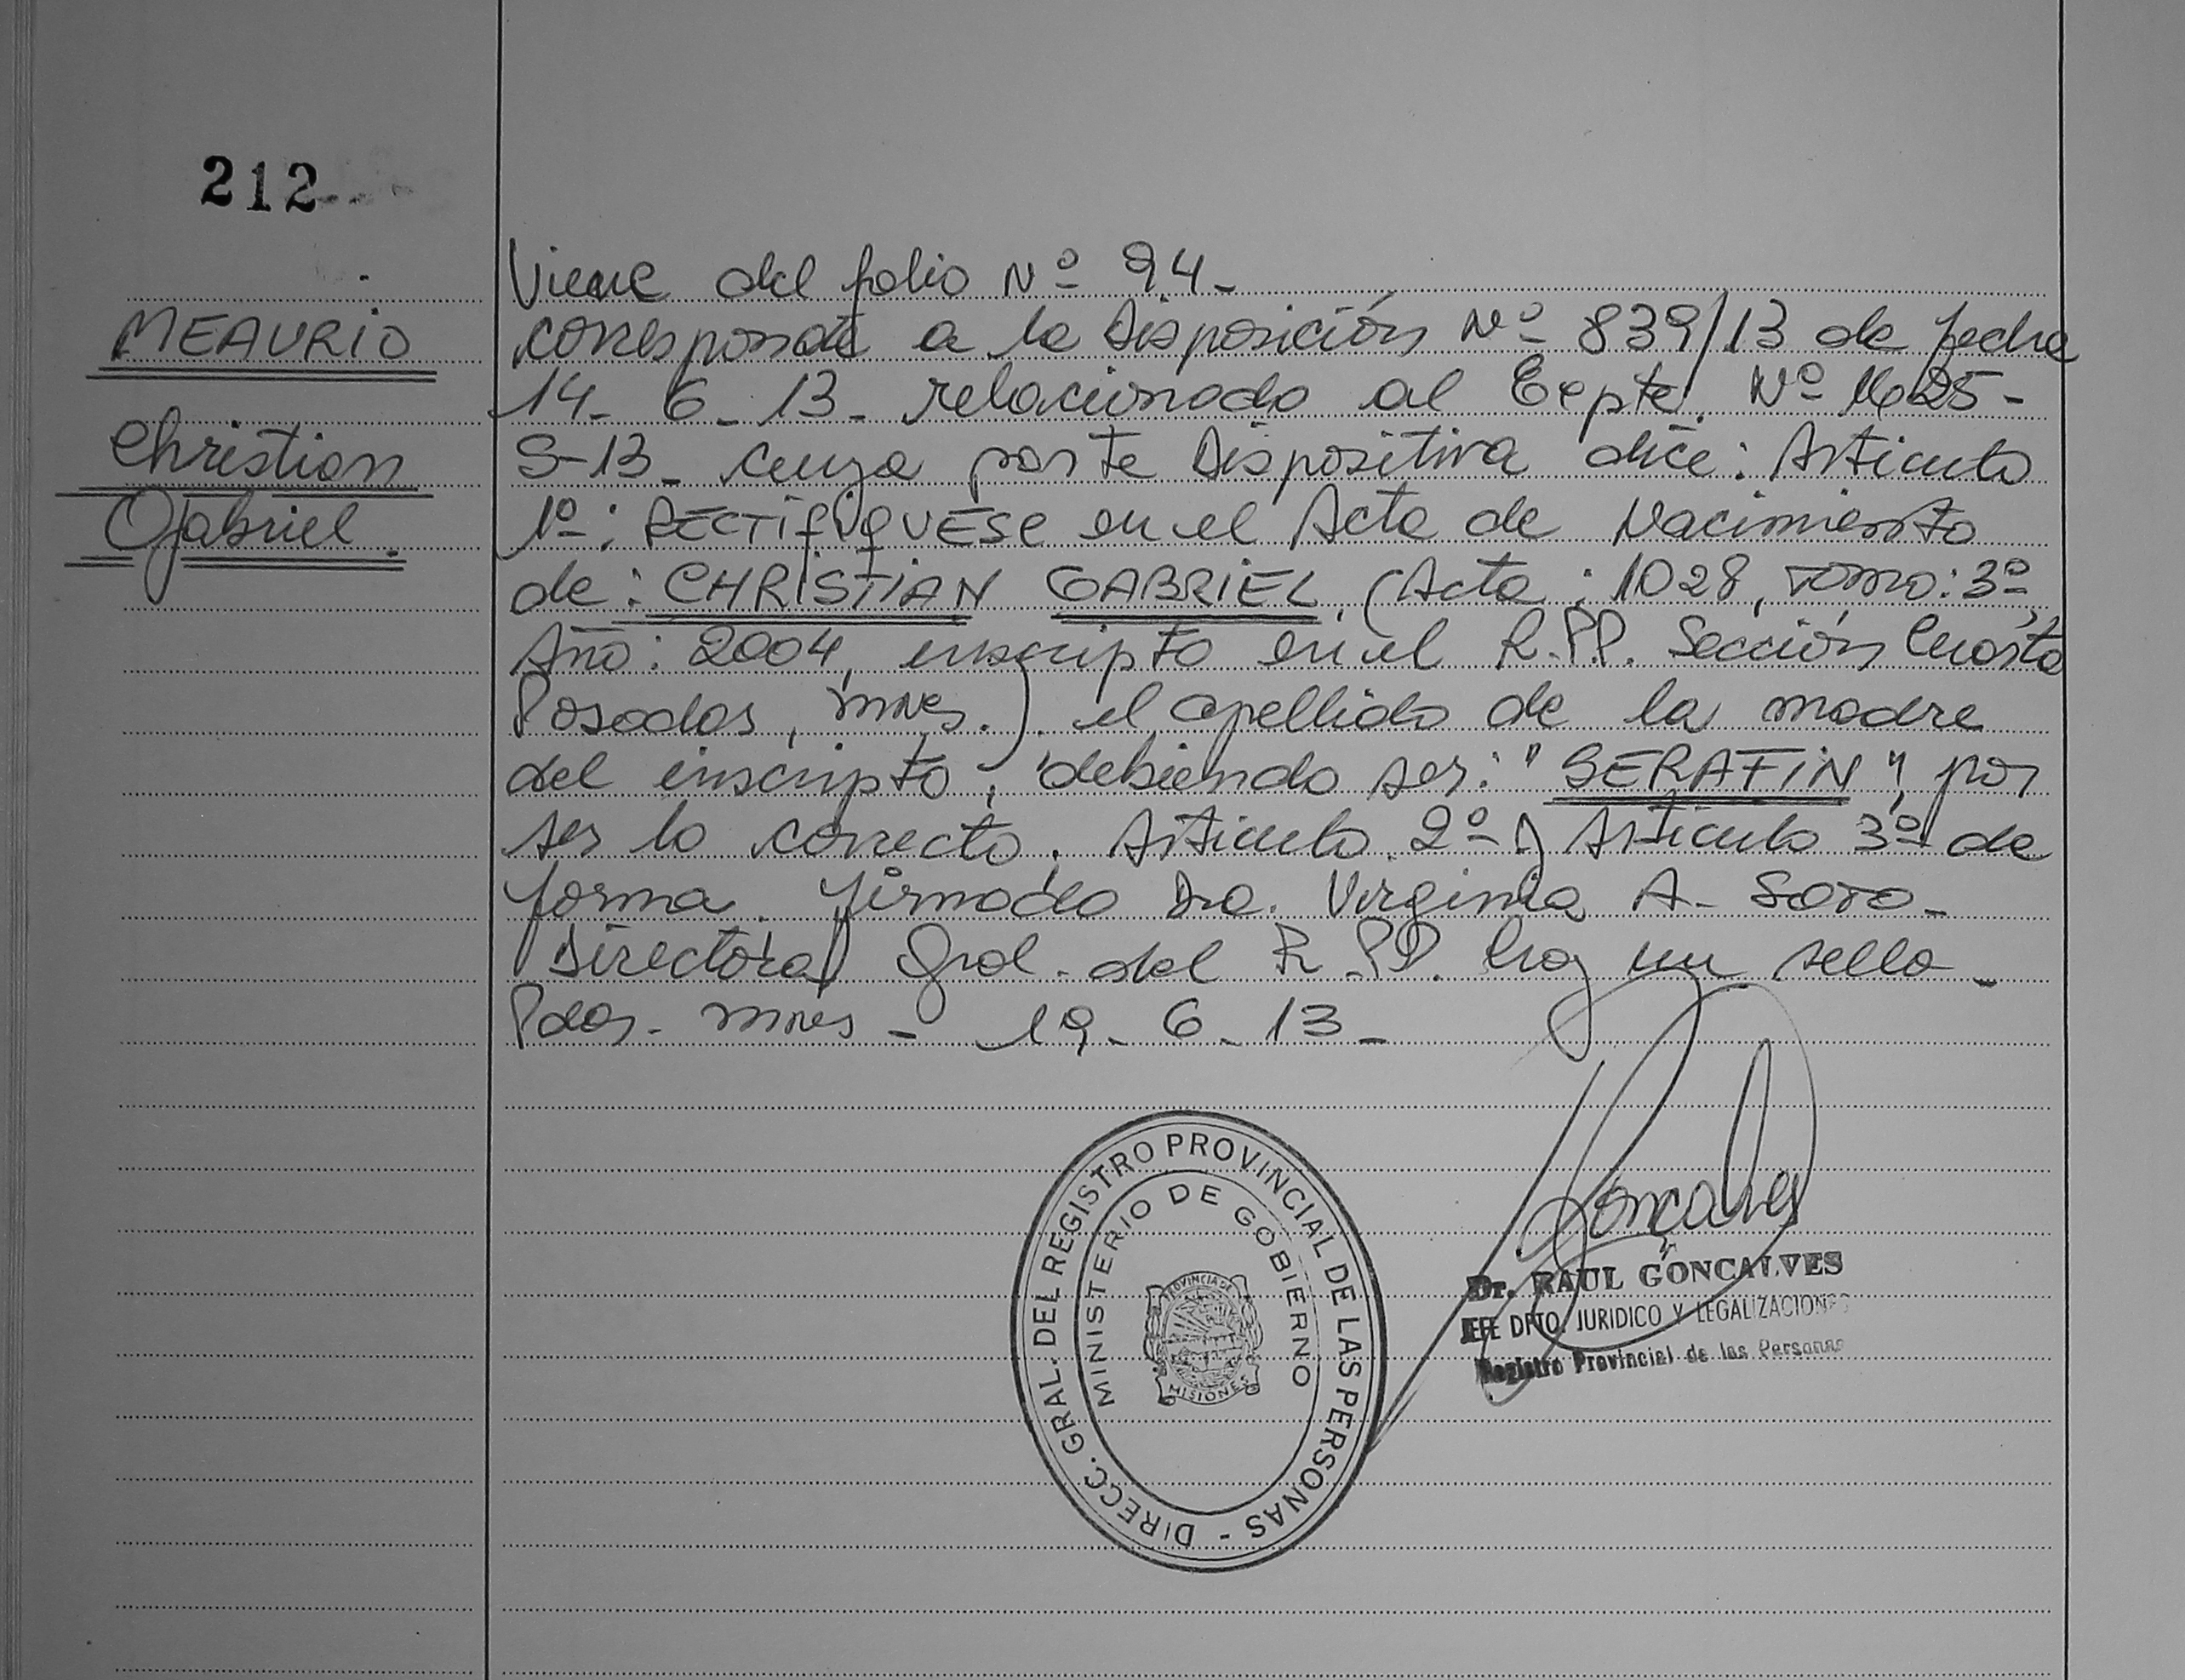 212
MEAURIO
Christian
Gabriel.
Viene del folio Nº 94-
corresponde a la Disposición Nº 839/13 de fecha
14-6-13- relacionado al Expte. Nº 1625-
S-13- cuya parte Dispositiva dice: Articulo
1º: RECTIFIQUESE en el Acta de Nacimiento
de: CHRISTIAN GABRIEL, (Acta: 1028, Tomo: 3º,
Año: 2004, inscripto en el R.P.P. Sección Cuarta
Posadas, Mnes.). el apellido de la madre
del inscripto, debiendo ser: "SERAFIN", por
ser lo correcto. Articulo 2º y Articulo 3º de
forma. Firmado Dra. Virginia A. Soto-
Directora Gral. del R.P.P. hay un sello-
Pdas. Mnes - 19-6-13-
DIRECC. GRAL. DEL REGISTRO PROVINCIAL DE LAS PERSONAS -
MINISTERIO DE GOBIERNO
PROVINCIA DE
MISIONES
Gonçalves
Dr. RAUL GONCALVES
JEFE DPTO. JURIDICO Y LEGALIZACIONES
Registro Provincial de las Personas